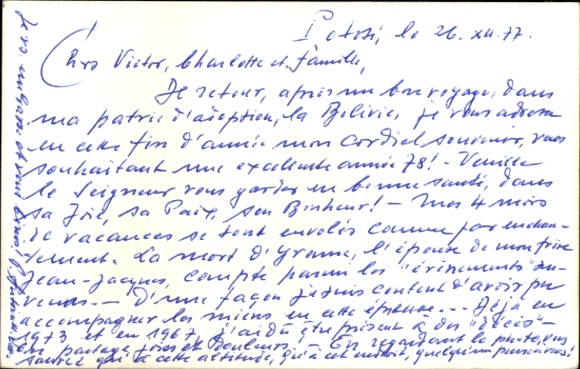 Potosi, le 26. XII. 77.
Chrs Victor, Charlotte et famille,
De retour, après un bon voyage, dans
ma patrie d'adoption, la Bolivie, je vous adresse
en cette fin d'année mon cordial souvenir, vous
souhaitant une excellente année 78! - Veuille
le Seigneur vous garder en bonne santé, dans
sa Joie, sa Paix, son Bonheur! - Mes 4 mois
de vacances se sont envolés comme par enchan-
tement. La mort d'Yvonne, l'épouse de mon frère
Jean-Jacques, compte parmi les "évènements" sur-
venus. - D'une façon je suis content d'avoir pu
accompagner les miens en cette épreuve... Déjà en
1973 et en 1967, j'ai dû être présent à des "décès" -
en partage joies et douleurs! - En regardant la photo, vous
saurez qu'à cette altitude, qu'à cet endroit, quelqu'un pense à vous!
Je vs embrasse et suis